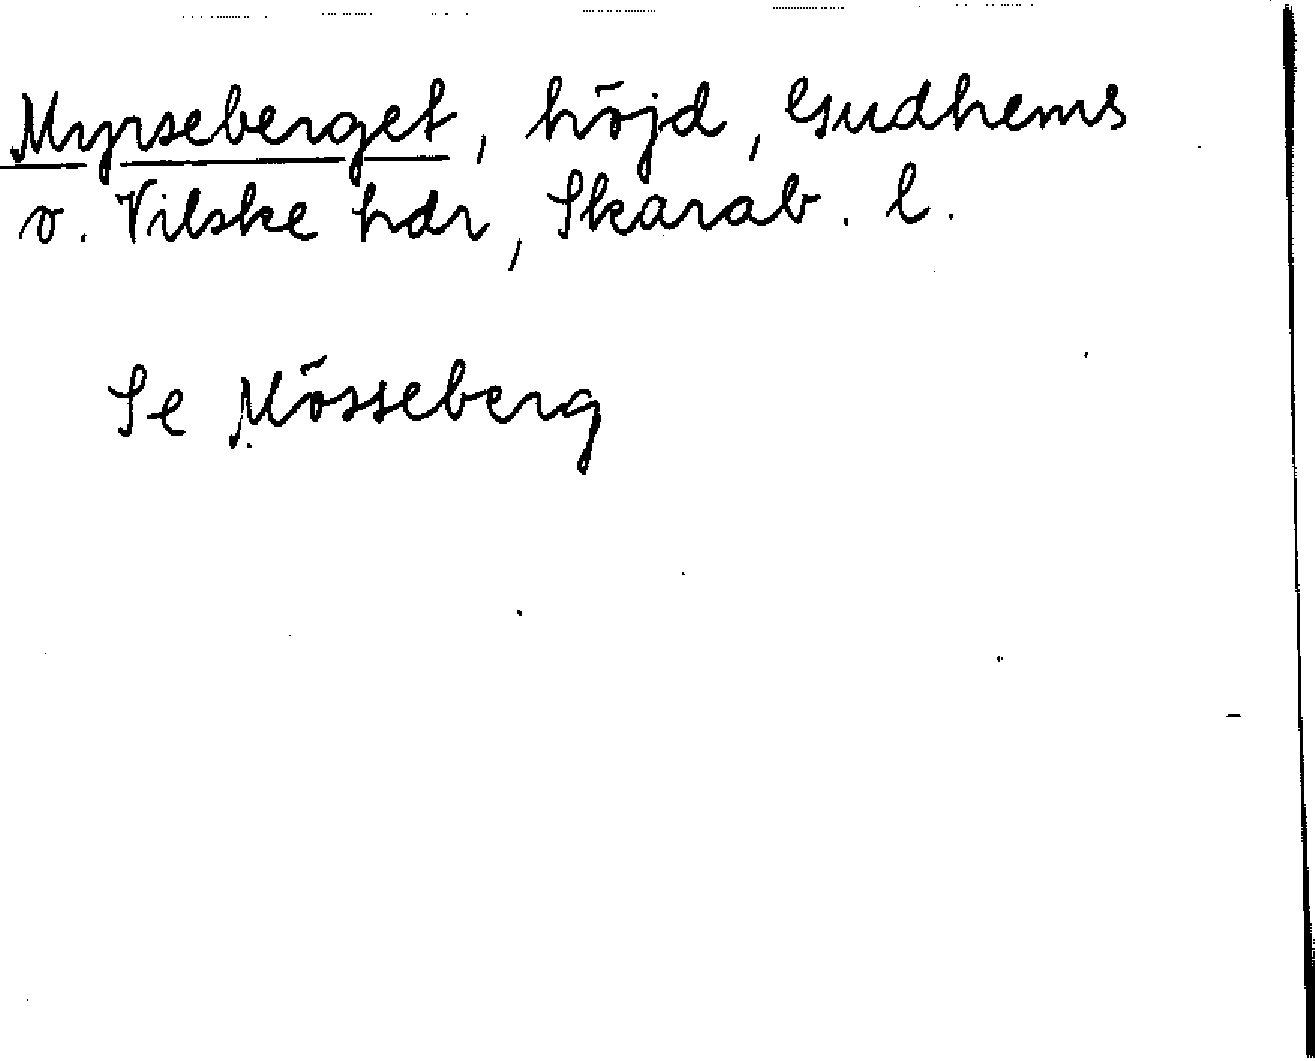 Myrseberget, höjd, Gudhems
o. Vilske hdr, Skarab. l.
Se Mösseberg